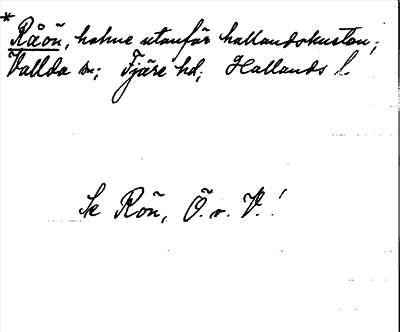 * Råön, holme utanför hallandskusten;
Vallda sn; Fjäre hd; Hallands l.
Se Rön, Ö. o. V.!